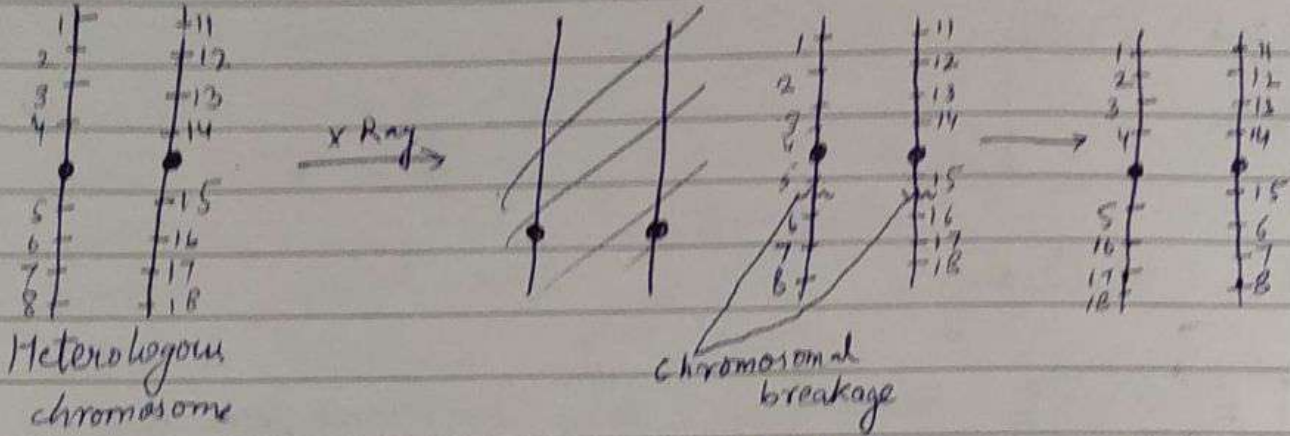 1
2
3
4
5
6
7
8
11
12
13
14
15
16
17
18
Heterologous
chromosome
X Ray
1
2
3
4
5
6
7
8
11
12
13
14
15
16
17
18
Chromosomal
breakage
1
2
3
4
5
16
17
18
11
12
13
14
15
6
7
8